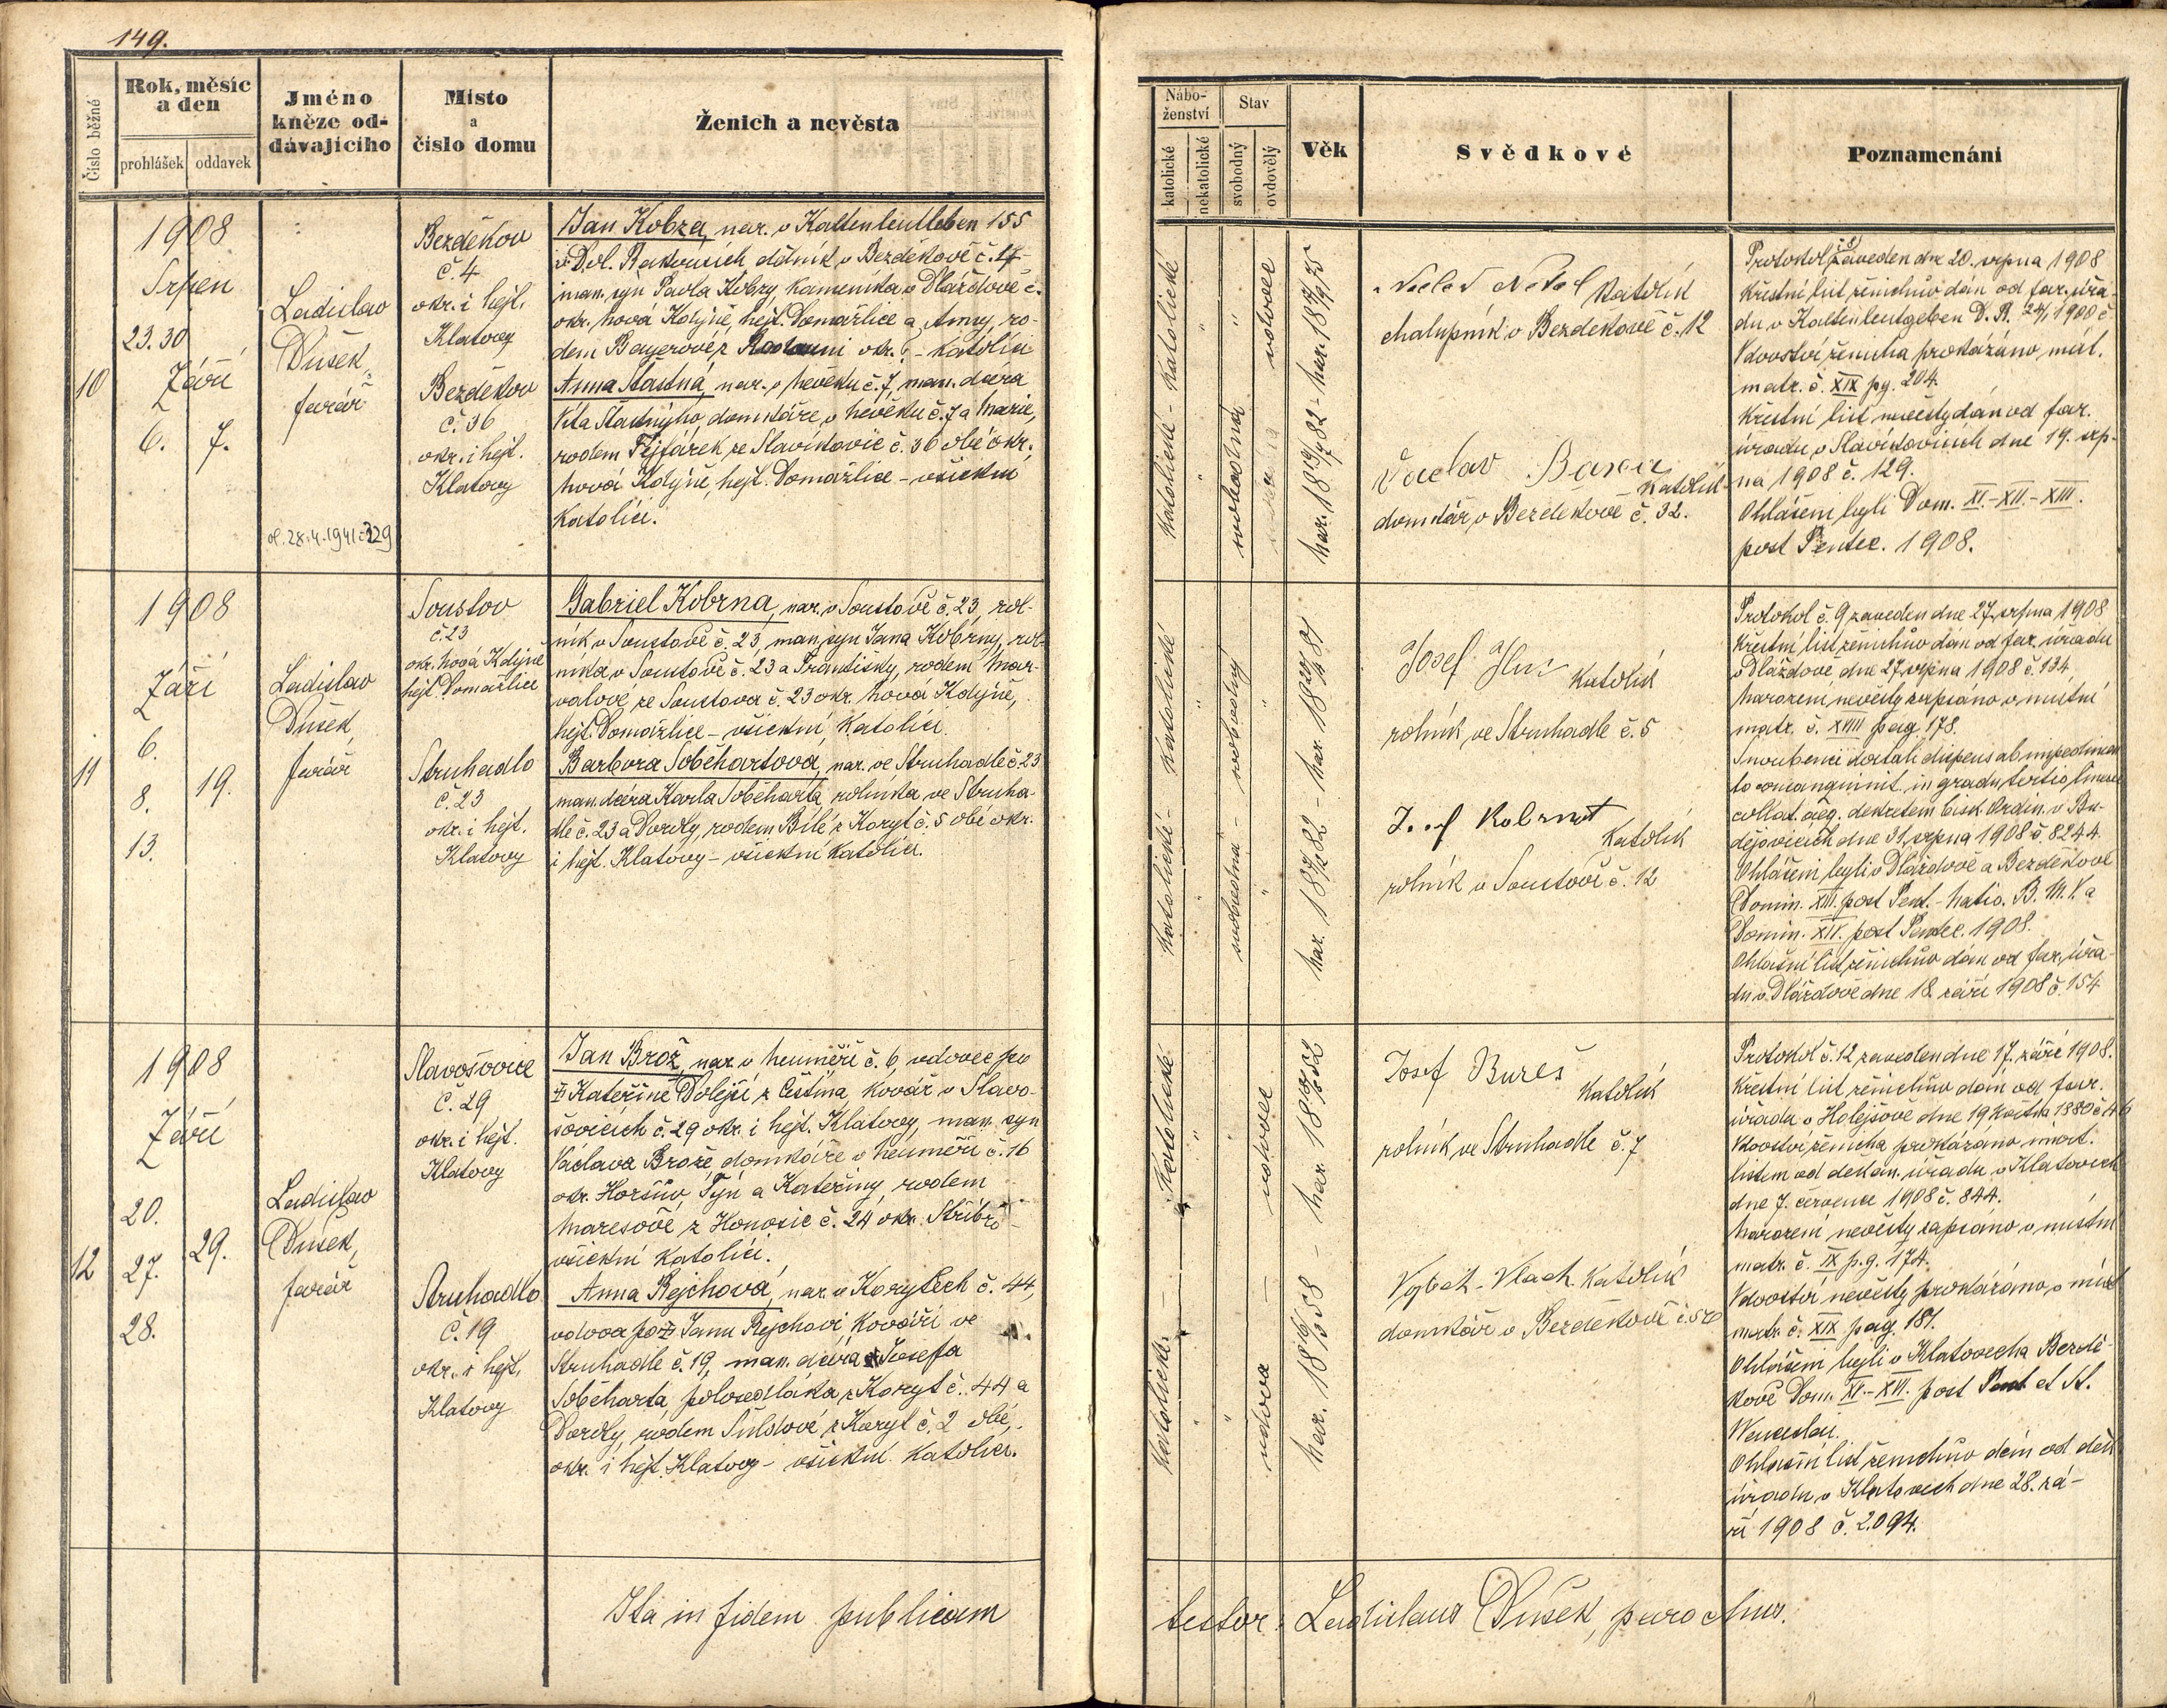 149.
Číslo běžné
Rok, měsíc
a den
prohlášek
oddavek
Jméno
kněze od-
dávajícího
Místo
a
číslo domu
Ženich a nevěsta
10
1908
Srpen
23. 30
Září
6. 7.
Ladislav
Dušek,
farář
ol. 28.4.1941 č 229
Bezděkov
č. 4
okr. i hejt.
Klatovy
Bezděkov
č. 36
okr. i hejt.
Klatovy
Jan Kobza, nar. v Kaltenleutleben 155
v Dol. Rakousích, dělník v Bezděkově č. 4
man. syn Pavla Kobzy, kameníka v Dlažďově č.
okr. Nová Kdýně, hejt. Domažlice a Anny, ro-
dem Bayerové z okr. - katolíci
Anna Šťastná, nar. v č. 7, man. dcera
Víta Šťastnýho, domkáře v č. 7 a Marie,
rodem Fejfárek ze Slavíkovic č. 36 obé okr.
Nová Kdýně, hejt. Domažlice - všickni
katolíci.
11
1908
Září
6.
8. 19.
13.
Ladislav
Dušek,
farář
Soustov
č. 23
okr. Nová Kdýně
hejt. Domažlice
Struhadlo
č. 23
okr. i hejt.
Klatovy
Gabriel Kobrna, nar. v Soustově č. 23, rol-
ník v Soustově č. 23, man. syn Jana Kobrny, rol-
níka v Soustově č. 23 a Františky, rodem Mar-
valové ze Soustova č. 23 okr. Nová Kdýně,
hejt. Domažlice - všickni katolíci.
Barbora Soběhartová, nar. ve Struhadle č. 23
man. dcera Karla Soběharta, rolníka ve Struha-
dle č. 23 a Doroty, rodem Bílé z Koryt č. 5 obé okr.
i hejt. Klatovy - všickni katolíci.
12
1908
Září
20.
27. 29.
28.
Ladislav
Dušek,
farář
Slavošovice
č. 29
okr. i hejt.
Klatovy
Struhadlo
č. 19
okr. i hejt.
Klatovy
Jan Brož, nar. v Neuměři č. 6, vdovec po
† Kateřině Dolejší z Čistina, kovář v Slavo-
šovicích č. 29 okr. i hejt. Klatovy, man. syn
Václava Brože, domkáře v Neuměři č. 16
okr. Horšův Týn a Kateřiny, rodem
Marešové z Honosic č. 24 okr. Stříbro -
všickni katolíci.
Anna Rejchová, nar. v Korytech č. 44,
vdova po † Janu Rejchovi kováři ve
Struhadle č. 19, man. dcera Josefa
Soběharta, polosedláka z Koryt č. 44 a
Doroty, rodem Šuldové z Koryt č. 2 obé,
okr. i hejt. Klatovy - všickni katolíci.
Ita in fidem publicam
Nábo-
ženství
katolické
nekatolické
Stav
svobodný
ovdovělý
Věk
Svědkové
Poznamenání
Katolické - Katolické
svobodná
vdovec
katolík
chalupník v Bezděkově č. 12
Václav
katolík
domkář v Bezděkově č. 32.
Protokol zaveden dne 20. srpna 1908
Křestní list ženichův dán od far. úřa-
du v Kaltenleutgeben D. R. 24/1 1900 č
Vdovství ženicha prokázáno, míst.
matr. č. XIX pg. 204.
Křestní list nevěsty dán od far.
úřadu v Slavíkovicích dne 19. srp-
na 1908 č. 129.
Ohlášeni byli Dom. XI.-XII.-XIII.
post Pentec. 1908.
Katolické - Katolické
svobodná - svobodný
Josef
katolík
rolník ve Struhadle č. 5
Josef
katolík
rolník v Soustově č. 12
Protokol č. 9 zaveden dne 27. srpna 1908
Křestní list ženichův dán od far. úřadu
v Dlažďově dne 27. srpna 1908 č. 134,
Narození nevěsty zapsáno v místní
matr. č. XVIII pag. 178.
Snoubenci dostali dispens ab impedimen
to consanguinit. in gradu tertio lineae
collat. aeq. dekretem bisk. Ordin. v Bu-
dějovicích dne 31. srpna 1908 č. 8244.
Ohlášeni byli v Dlažďově a Bezděkově
Domin. XIII. post Pent. - Nativ. B. M. V. a
Domin. XIV. post Pentec. 1908.
Ohlašní list ženichův dán od far. úřa-
du v Dlažďově dne 18. září 1908 č. 154
Katolické
Katolické
vdovec
vdova
Josef Bureš
katolík
rolník ve Struhadle č. 7
Vojtěch Vlach katolík
domkář v Bezděkově č. 50
Protokol č. 12 zaveden dne 17. září 1908.
Křestní list ženichův dán od far.
úřadu v Holejšově dne 19 května 1880 č 46
Vdovství ženicha prokázáno úmrt.
listem od děkan. úřadu v Klatovech
dne 7. července 1908 č. 844.
Narození nevěsty zapsáno v místní
matr. č. IX pg. 174.
Vdovství nevěsty prokázáno v míst
matr. č. XIX pag. 181.
Ohlášeni byli v Klatovech a Bezdě-
kově Dom. XV.-XVI. post Pent. et St.
Wenceslai.
Ohlašní list ženichův dán od děk
úřadu v Klatovech dne 28. zá-
ří 1908 č. 2094.
testor: Ladislaus Dušek, parochus.